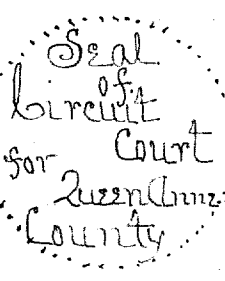 Seal
of
Circuit
Court
for
Queen Anne:
County